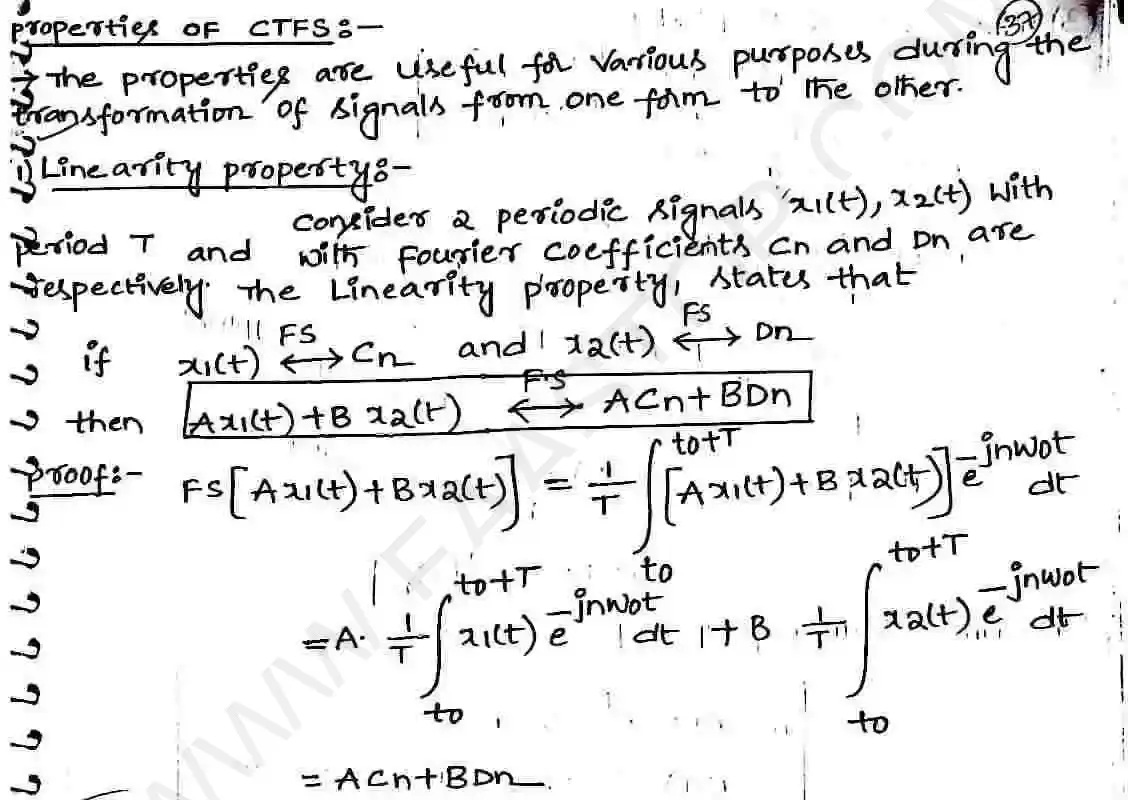 properties OF CTFS:-
(37)
→ The properties are useful for various purposes during the
transformation of signals from one form to the other.
1) Linearity property:-
Consider 2 periodic signals x1(t), x2(t) with
period T and with Fourier coefficients Cn and Dn are
respectively. The Linearity property, states that
if x1(t) <-FS-> Cn and x2(t) <-FS-> Dn
then Ax1(t)+B x2(t) <-FS-> ACn+BDn
Proof:- FS[Ax1(t)+Bx2(t)] = 1/T ∫_{to}^{to+T} [Ax1(t)+Bx2(t)] e^{-jnwot} dt
=A. 1/T ∫_{to}^{to+T} x1(t) e^{-jnwot} dt + B 1/T ∫_{to}^{to+T} x2(t) e^{-jnwot} dt
= ACn+BDn